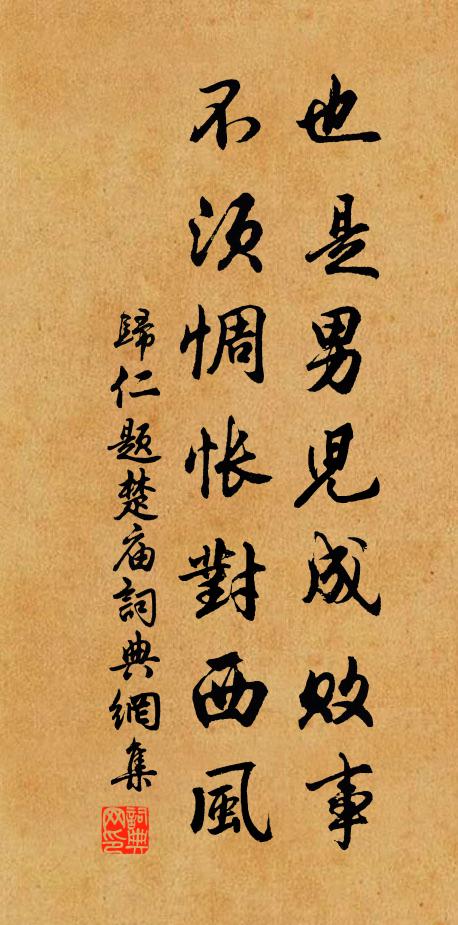 也是男兒成敗事
不須惆悵對西風
歸仁題楚庙詞典網集
詞典网印